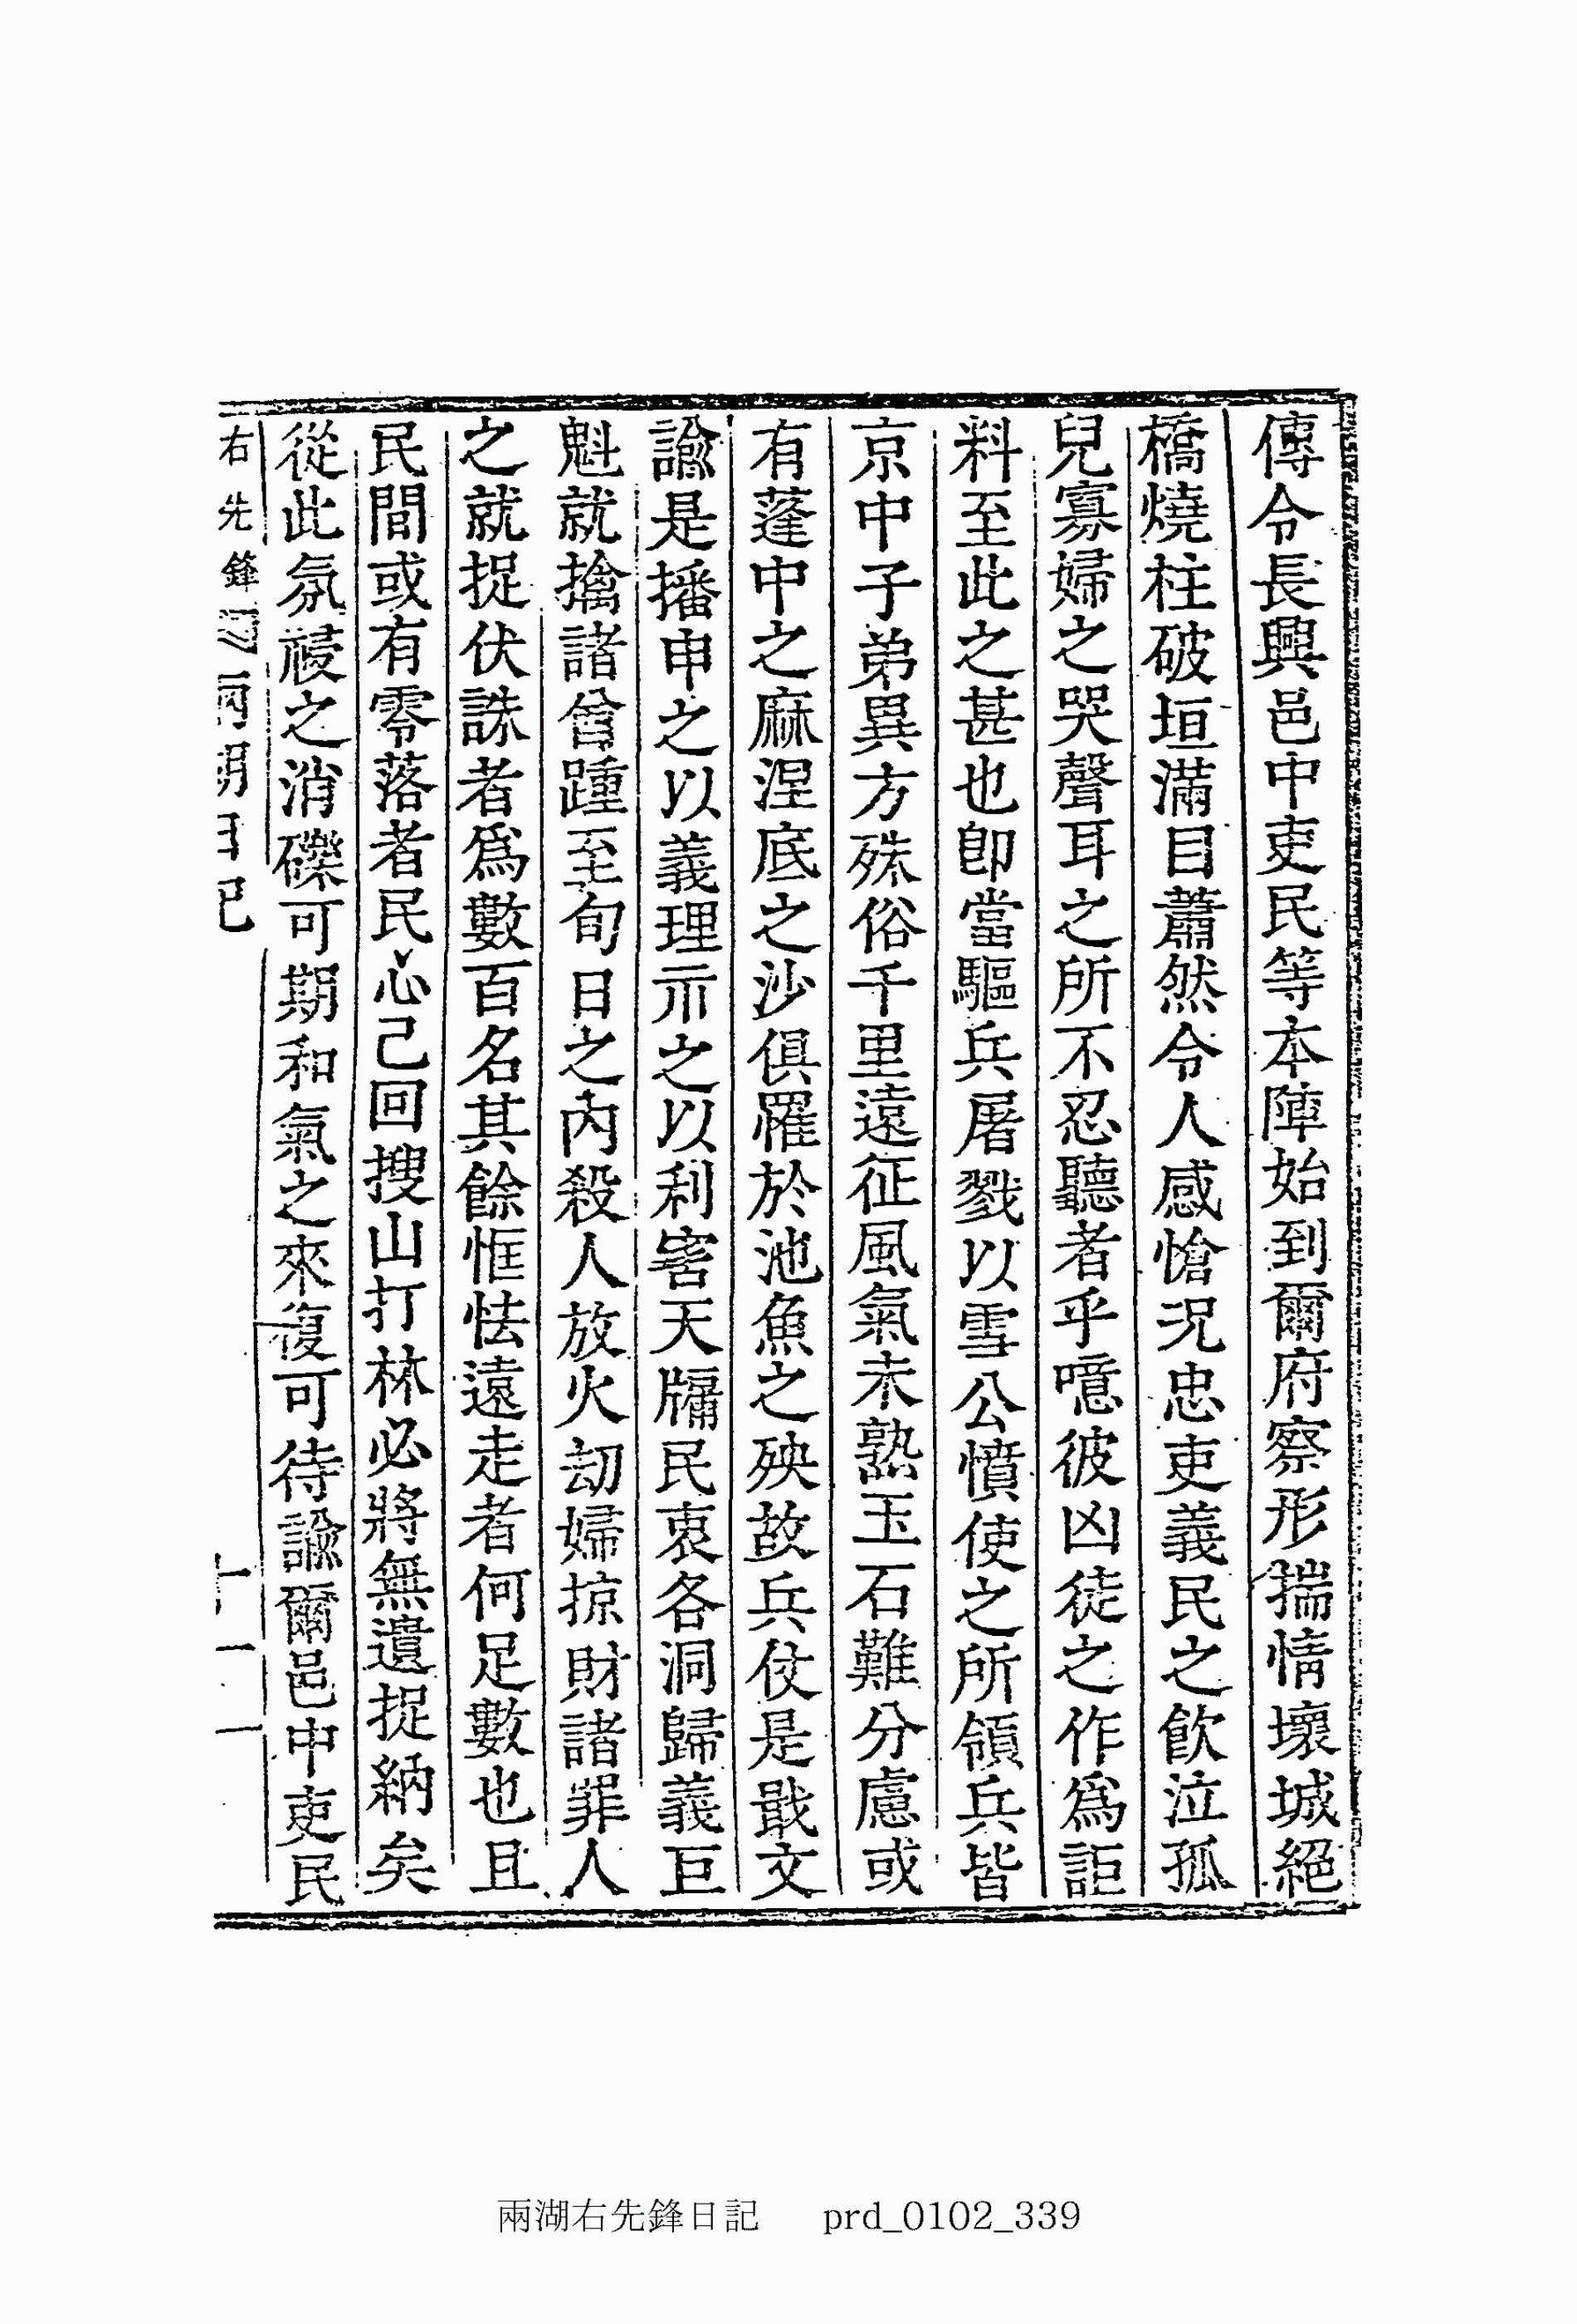 傳令長興邑中吏民等本陣始到爾府察形揣情壞城絕
橋燒柱破垣滿目蕭然令人感愴况忠吏義民之飮泣孤
兒寡婦之哭聲耳之所不忍聽者乎噫彼凶徒之作爲詎
料至此之甚也卽當驅兵屠戮以雪公憤使之所領兵皆
京中子弟異方殊俗千里遠征風氣未熟玉石難分慮或
有蓬中之麻涅底之沙俱罹於池魚之殃故兵仗是戢文
諭是播申之以義理示之以利害天牖民衷各洞歸義巨
魁就擒諸酋踵至旬日之內殺人放火刦婦掠財諸罪人
之就捉伏誅者爲數百名其餘恇怯遠走者何足數也且
民間或有零落者民心已回搜山打林必將無遺捉納矣
從此氛祲之消礫可期和氣之來復可待諭爾邑中吏民
右先鋒 兩湖日記 十一
兩湖右先鋒日記 prd_0102_339